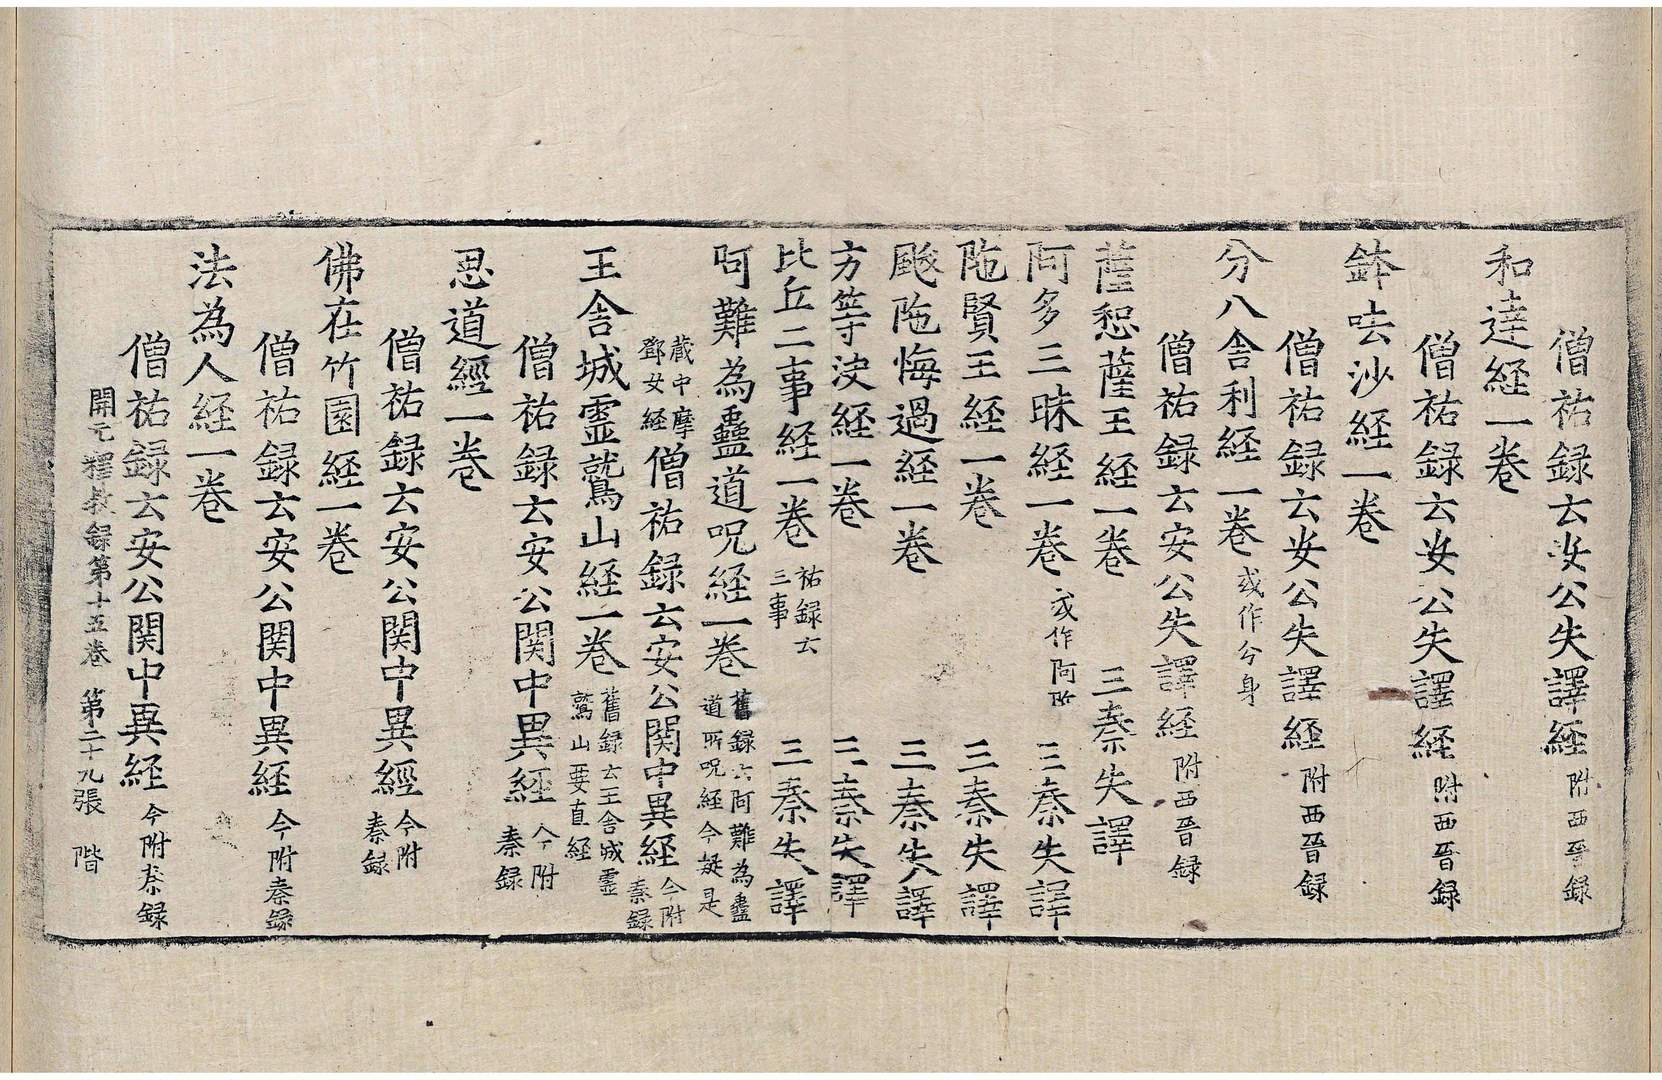 僧祐録云安公失譯経附西晉録
和達経一卷
僧祐録云安公失譯経附西晉録
鉢呿沙経一卷
僧祐録云安公失譯経附西晉録
分八舎利経一卷或作今身
僧祐録云安公失譯経附西晉録
薩恕薩王経一卷 三秦失譯
阿多三昧経一卷或作阿陁 三秦失譯
陁賢王経一卷 三秦失譯
颰陁悔過経一卷 三秦失譯
方等決経一卷 三秦失譯
比丘二事経一卷祐録云三事 三秦失譯
阿難為蠱道呪経一卷舊録云阿難為蠱道所呪経今疑是
藏中摩鄧女経僧祐録云安公関中異経今附秦録
王舎城霊鷲山経一卷舊録云王舎城霊鷲山要直経
僧祐録云安公関中異経今附秦録
思道經一卷
僧祐録云安公関中異經今附秦録
佛在竹園経一卷
僧祐録云安公関中異経今附秦録
法為人経一卷
僧祐録云安公関中異経今附秦録
開元釋教録第十五卷 第二十九張 階